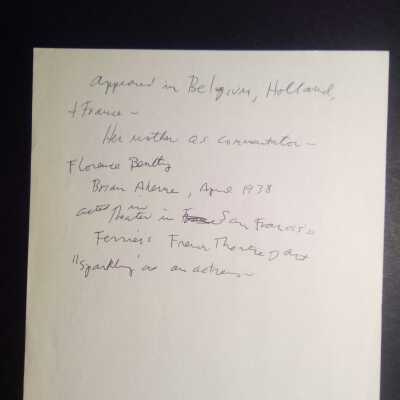 appeared in Belgium, Holland,
+ France –
Her mother as commentator –
Florence
Brian Aherne, April 1938
acted in
Theater in San Francisco
Theatre of Art
"Sparkling" as an actress